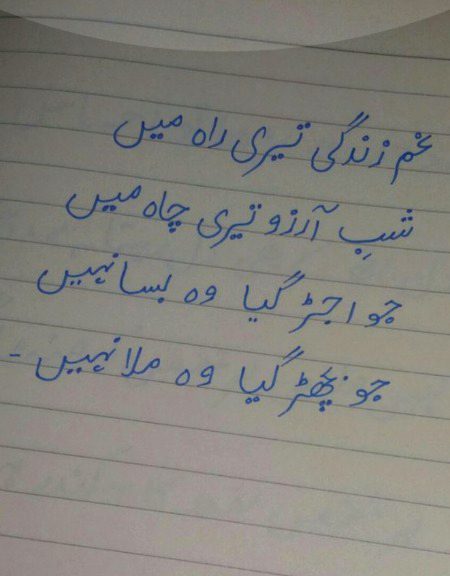 غم زندگی تیری راہ میں
شبِ آرزو تیری چاہ میں
جو اجڑ گیا وہ بسا نہیں
جو بچھڑ گیا وہ ملا نہیں -